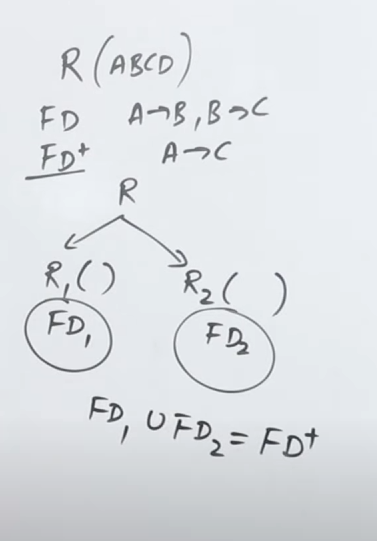 R(ABCD)
FD A→B, B→C
FD⁺ A→C
R
R₁( ) R₂( )
FD₁ FD₂
FD₁ ∪ FD₂ = FD⁺